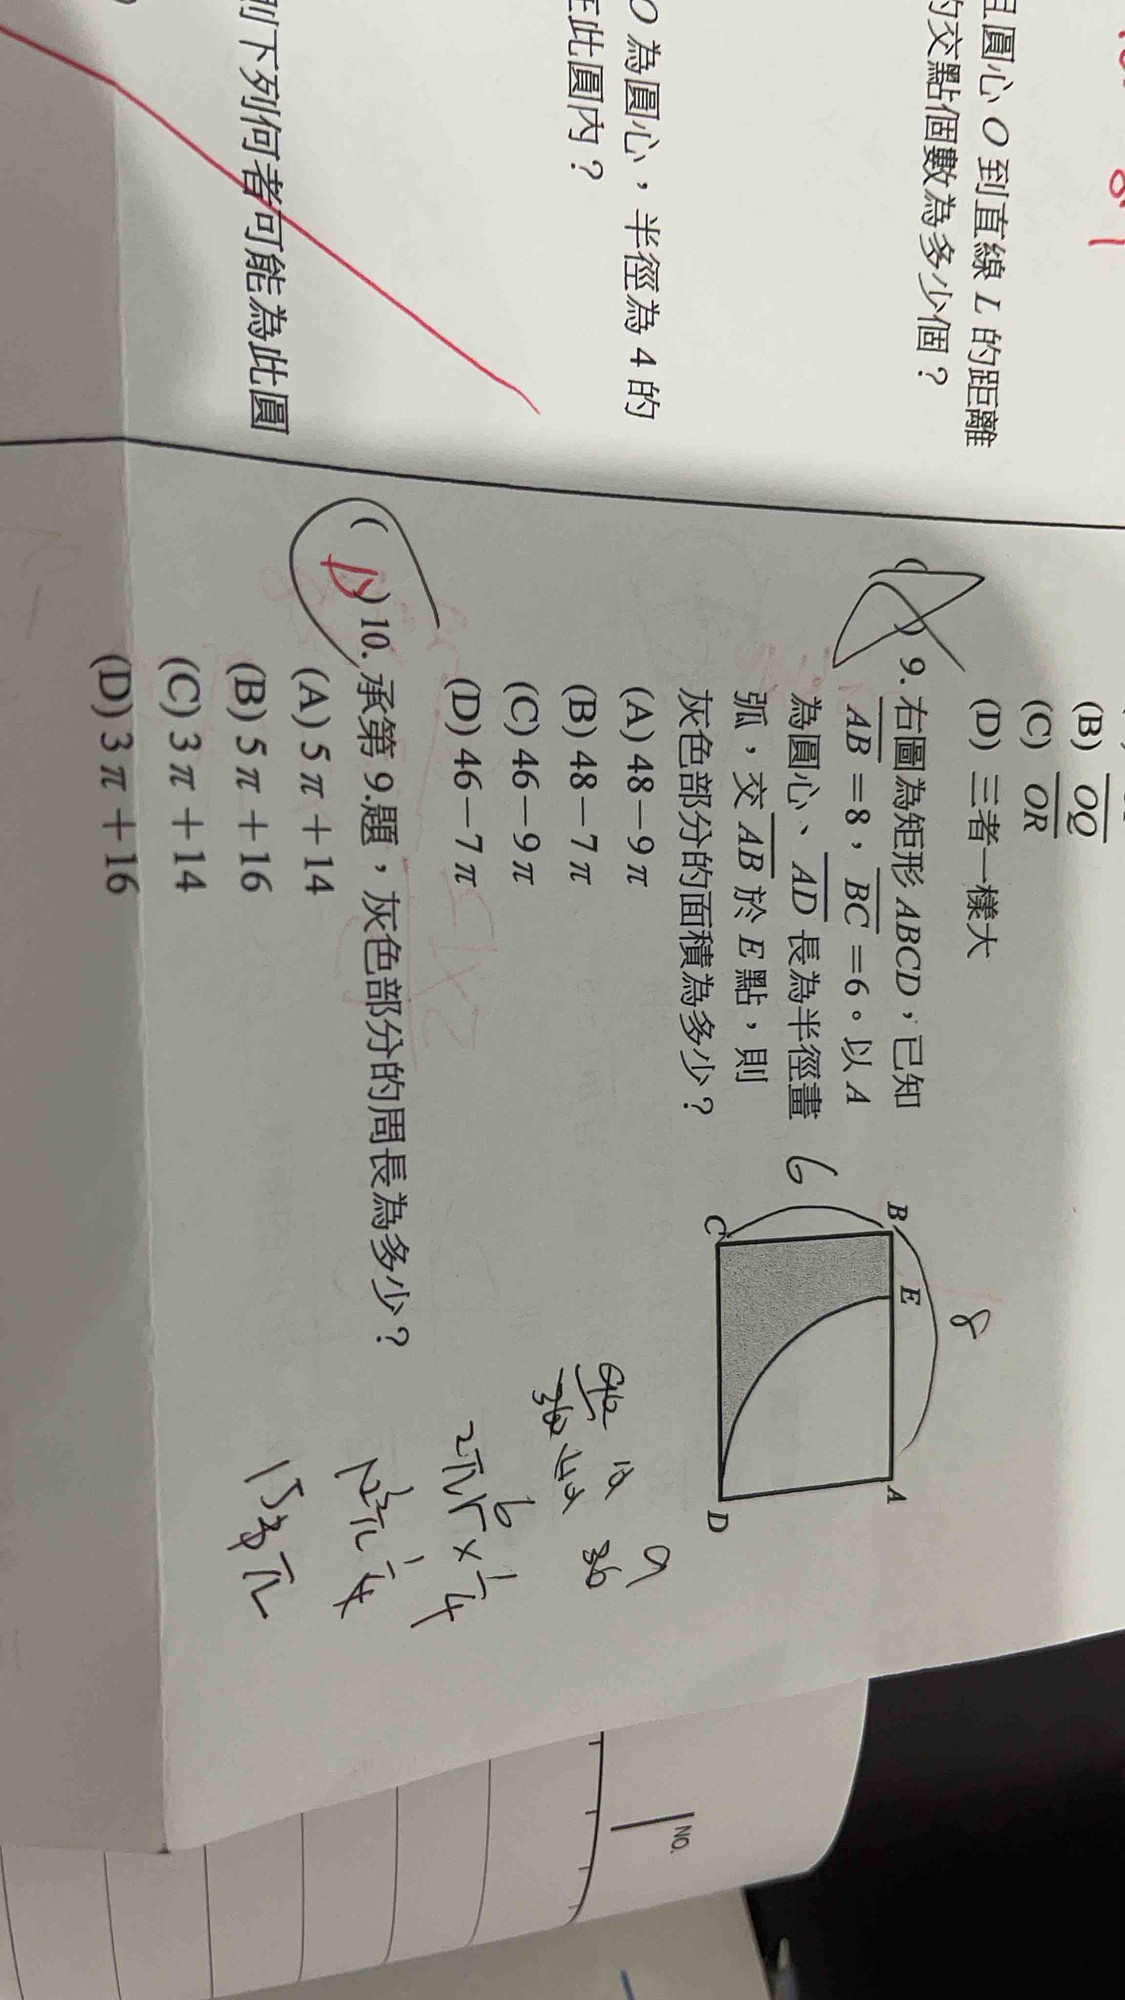 且圓心 O 到直線 L 的距離
的交點個數為多少個？
O 為圓心，半徑為 4 的
在此圓內？
則下列何者可能為此圓
(B) OQ
(C) OR
(D) 三者一樣大
( ) 9. 右圖為矩形 ABCD，已知
AB =8，BC =6。以 A
為圓心、AD 長為半徑畫
弧，交 AB 於 E 點，則
灰色部分的面積為多少？
(A) 48－9π
(B) 48－7π
(C) 46－9π
(D) 46－7π
B E A
C D
8
6
( D ) 10. 承第 9.題，灰色部分的周長為多少？
(A) 5π＋14
(B) 5π＋16
(C) 3π＋14
(D) 3π＋16
9
36
2πr × 1/4
6
NO.